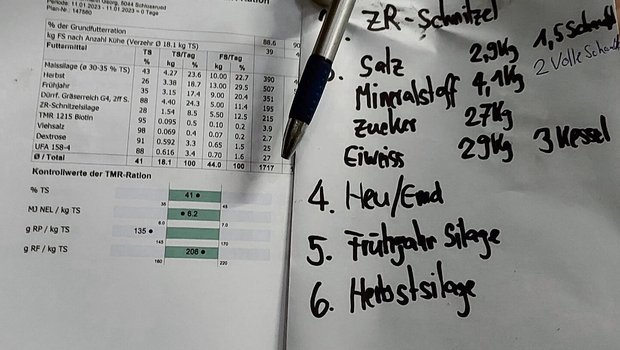 11.01.2023 - 11.01.2023 = 0 Tage
Plan-Nr. 147560
% der Grundfutterration 88.6
kg FS nach Anzahl Kühe (Verzehr Ø 18.1 kg TS) 39
Futtermittel TS % TS/Tag kg % FS/Tag kg %
Naissilage (ø 30-35 % TS) 43 4.27 23.6 10.00 22.7 390
Herbst 26 3.38 18.7 13.00 29.5 507
Frühjahr 35 3.15 17.4 9.00 20.4 351
Dürrf. Gräserreich G4, 2ff S. 88 4.40 24.3 5.00 11.4 195
ZR-Schnitzelsilage 28 1.54 8.5 5.50 12.5 215
TMR 1215 Biotin 95 0.095 0.5 0.10 0.2 3.9
Viehsalz 98 0.069 0.4 0.07 0.2 2.7
Dextrose 91 0.592 3.3 0.65 1.5 25
UFA 158-4 88 0.616 3.4 0.70 1.6 27
Ø / Total 41 18.1 100 44.0 100 1717
Kontrollwerte der TMR-Ration
% TS 35 41 45
MJ NEL / kg TS 6.2
6.0 7.0
g RP / kg TS 135 145 170
g RF / kg TS 160 206 220
ZR-Schnitzel
Salz 2,9Kg 1,5
Mineralstoff 4,1Kg 2 Volle
Zucker 27Kg
Eiweiss 29Kg 3 Kessel
4. Heu/Emd
5. Frühjahr Silage
6. Herbstsilage